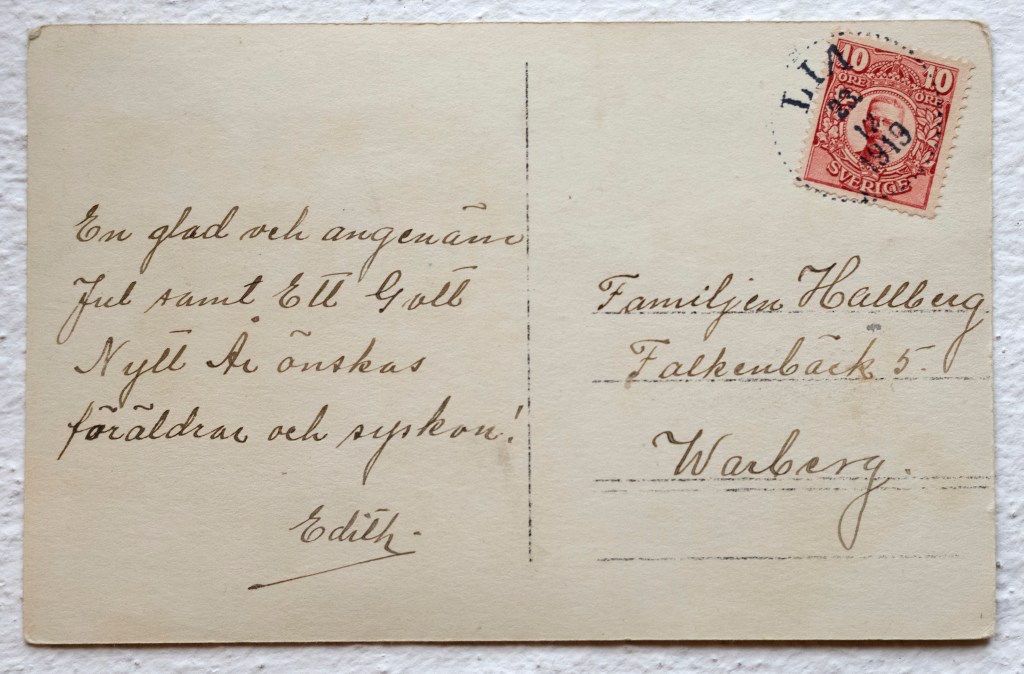 En glad och angenäm
Jul samt Ett Gott
Nytt År önskas
föräldrar och syskon!
Edith.
10 10
ÖRE ÖRE
SVERIGE
LIA
23
12
1919
Familjen Hallberg
Falkenbäck 5.
Warberg.